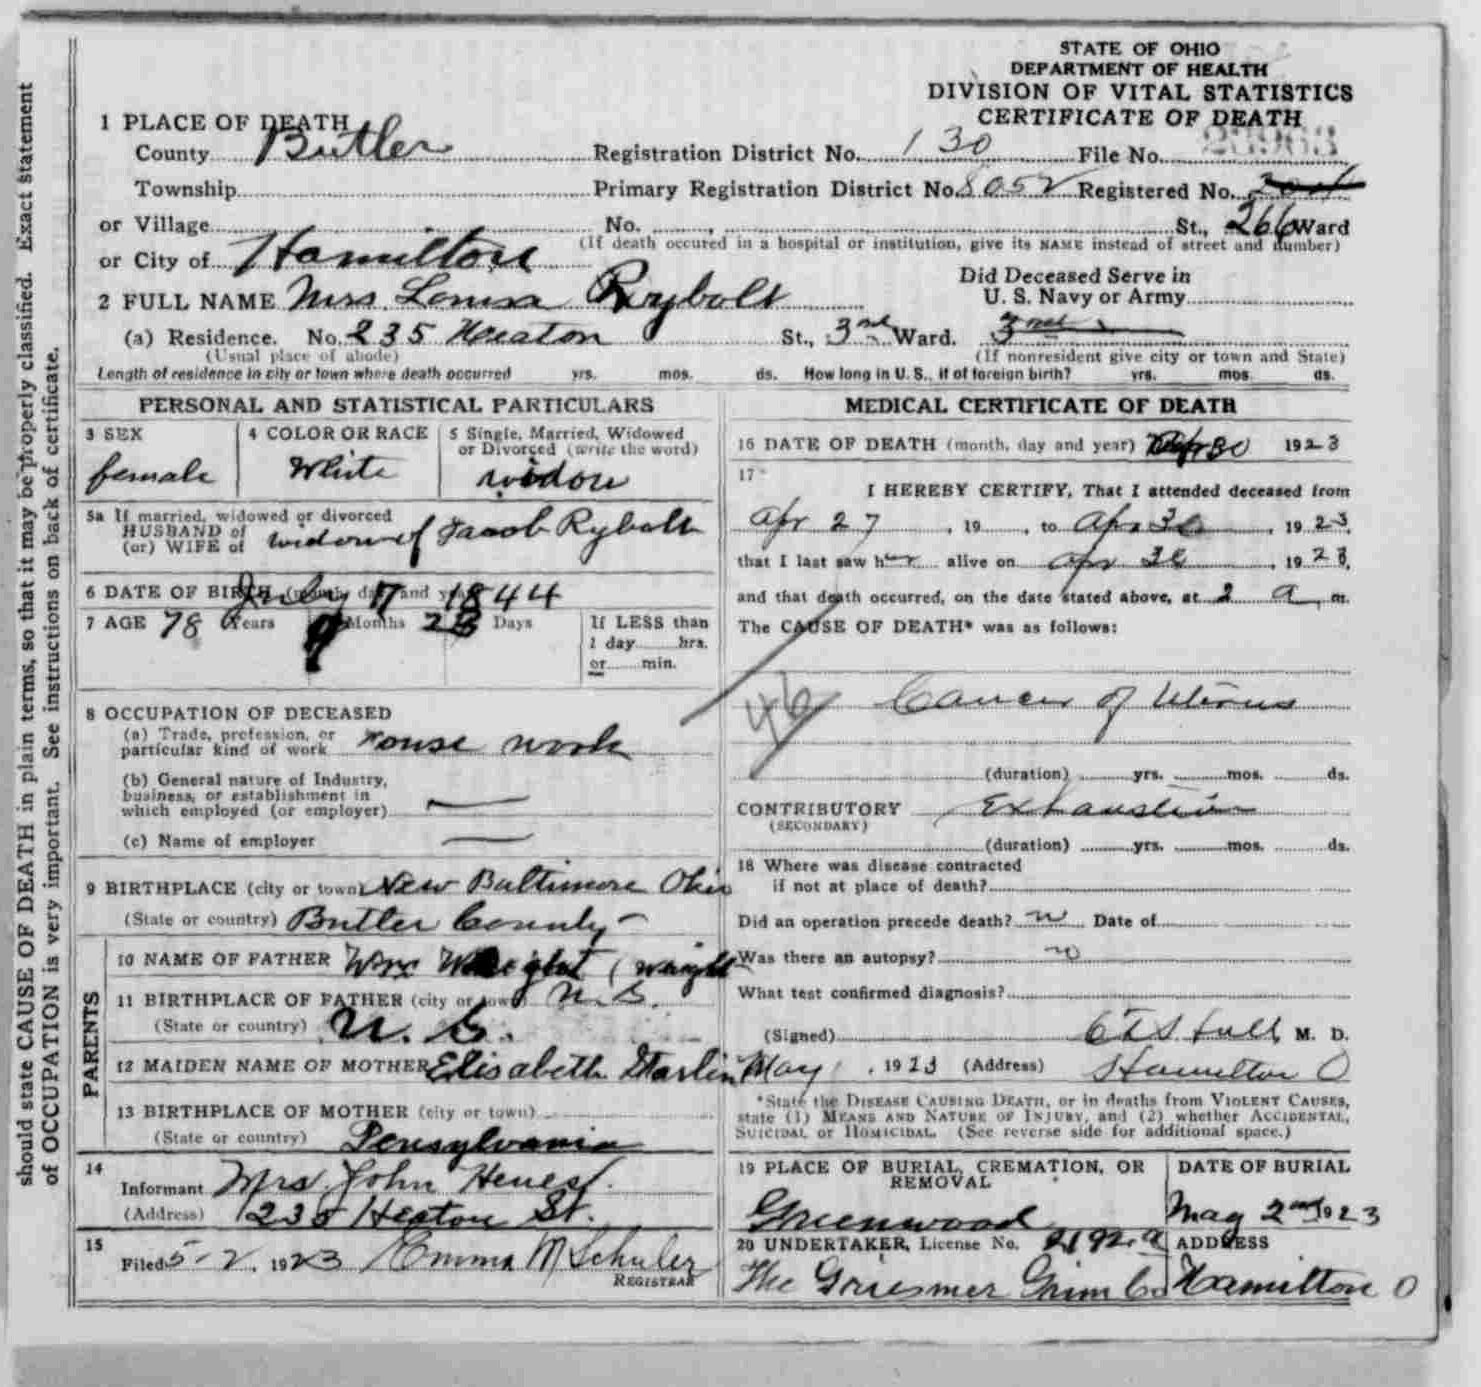 STATE OF OHIO
DEPARTMENT OF HEALTH
DIVISION OF VITAL STATISTICS
CERTIFICATE OF DEATH
1 PLACE OF DEATH
County Butler Registration District No. 130 File No.
Township Primary Registration District No. 8052 Registered No.
or Village No. St., 266 Ward
(If death occured in a hospital or institution, give its NAME instead of street and number)
or City of Hamilton
Did Deceased Serve in
U. S. Navy or Army
2 FULL NAME Mrs. Louisa Rybolt
(a) Residence. No. 235 Heaton St., 3rd Ward. 3rd
(Usual place of abode) (If nonresident give city or town and State)
Length of residence in city or town where death occurred yrs. mos. ds. How long in U. S., if of foreign birth? yrs. mos. ds.
PERSONAL AND STATISTICAL PARTICULARS
3 SEX 4 COLOR OR RACE 5 Single, Married, Widowed
or Divorced (write the word)
female White widow
5a If married, widowed or divorced
HUSBAND of
(or) WIFE of widow of Jacob Rybolt
6 DATE OF BIRTH (month, day and year) July 7 1844
7 AGE 78 Years 9 Months 23 Days If LESS than
1 day hrs.
or min.
8 OCCUPATION OF DECEASED
(a) Trade, profession, or
particular kind of work House work
(b) General nature of Industry,
business, or establishment in
which employed (or employer) —
(c) Name of employer —
9 BIRTHPLACE (city or town) New Baltimore Ohio
(State or country) Butler County -
PARENTS
10 NAME OF FATHER Wm Wright (Wright
11 BIRTHPLACE OF FATHER (city or town) U. S.
(State or country) U. S.
12 MAIDEN NAME OF MOTHER Elisabeth Starlin
13 BIRTHPLACE OF MOTHER (city or town)
(State or country) Pensylvania
14
Informant Mrs. John Henes
(Address) 235 Heaton St.
15
Filed 5-2, 1923 Emma M Schuler
REGISTRAR
MEDICAL CERTIFICATE OF DEATH
16 DATE OF DEATH (month, day and year) Apr 30 1923
17
I HEREBY CERTIFY, That I attended deceased from
Apr 27, 19 , to Apr 30, 1923,
that I last saw her alive on Apr 30, 1923,
and that death occurred, on the date stated above, at 2 a m.
The CAUSE OF DEATH* was as follows:
46 Cancer of Uterus
(duration) yrs. mos. ds.
CONTRIBUTORY Exhaustion
(SECONDARY)
(duration) yrs. mos. ds.
18 Where was disease contracted
if not at place of death?
Did an operation precede death? no Date of
Was there an autopsy? no
What test confirmed diagnosis?
(Signed) Hull M. D.
May 1, 1923 (Address) Hamilton O
*State the DISEASE CAUSING DEATH, or in deaths from VIOLENT CAUSES,
state (1) MEANS AND NATURE OF INJURY, and (2) whether ACCIDENTAL,
SUICIDAL or HOMICIDAL. (See reverse side for additional space.)
19 PLACE OF BURIAL, CREMATION, OR
REMOVAL
DATE OF BURIAL
Greenwood May 2nd 1923
20 UNDERTAKER, License No. ADDRESS
The Griesmer Grim Co Hamilton O
should state CAUSE OF DEATH in plain terms, so that it may be properly classified. Exact statement
of OCCUPATION is very important. See instructions on back of certificate.